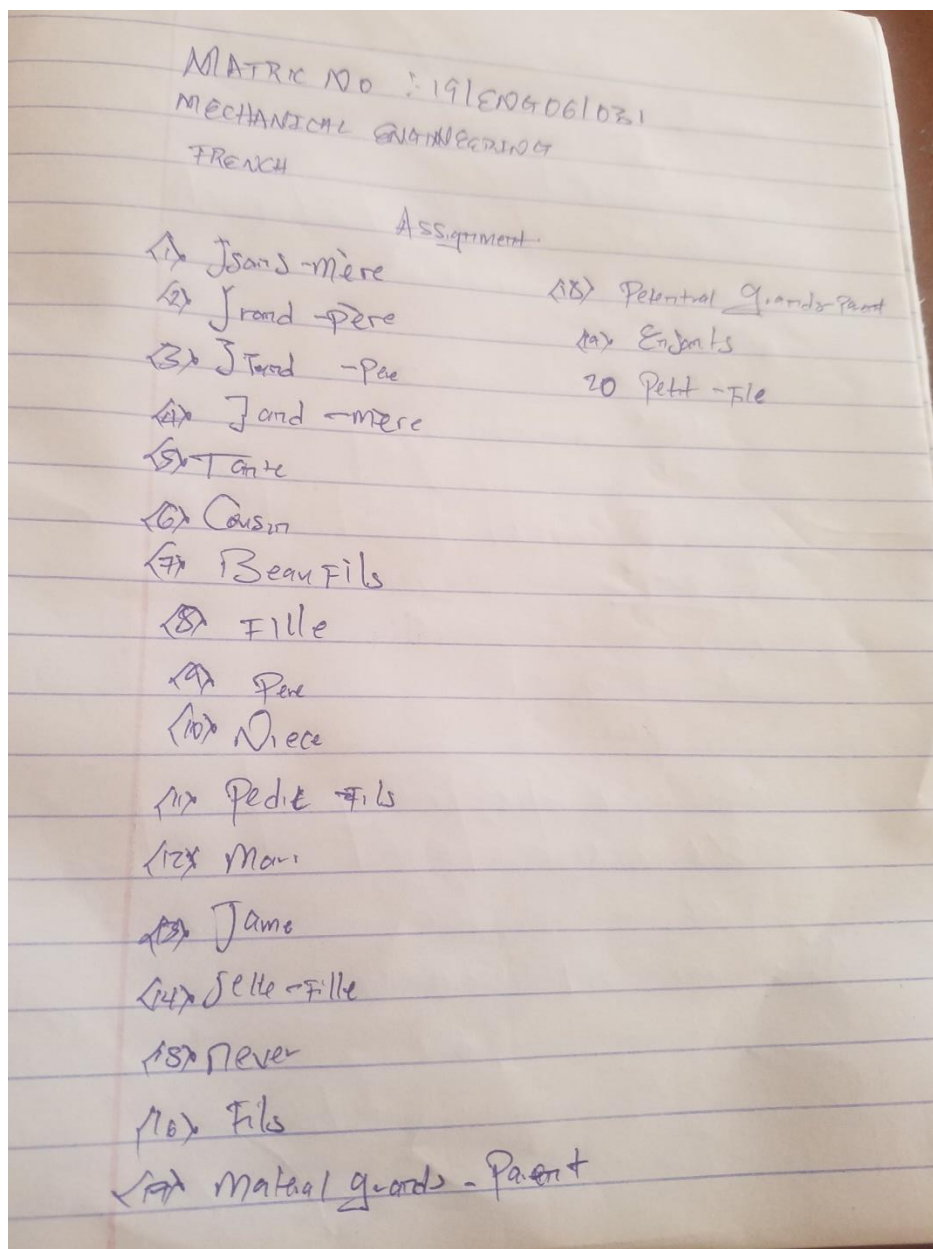 MATRIC NO : 19/ENG06/031
MECHANICAL ENGINEERING
FRENCH
Assignment
(1) Jsans-mère
(2) Jrand-père
(3) JTand -Pere
(4) Jand-mère
(5) Tante
(6) Cousin
(7) Beau Fils
(8) Fille
(9) Pere
(10) Niece
(11) Pedit -Fils
(12) Mari
(13) Jame
(14) Selle-Fille
(15) never
(16) Fils
(17) Mateal grands-Parent
(18) Petentral grands-Parent
(19) Enjants
20 Petit-File